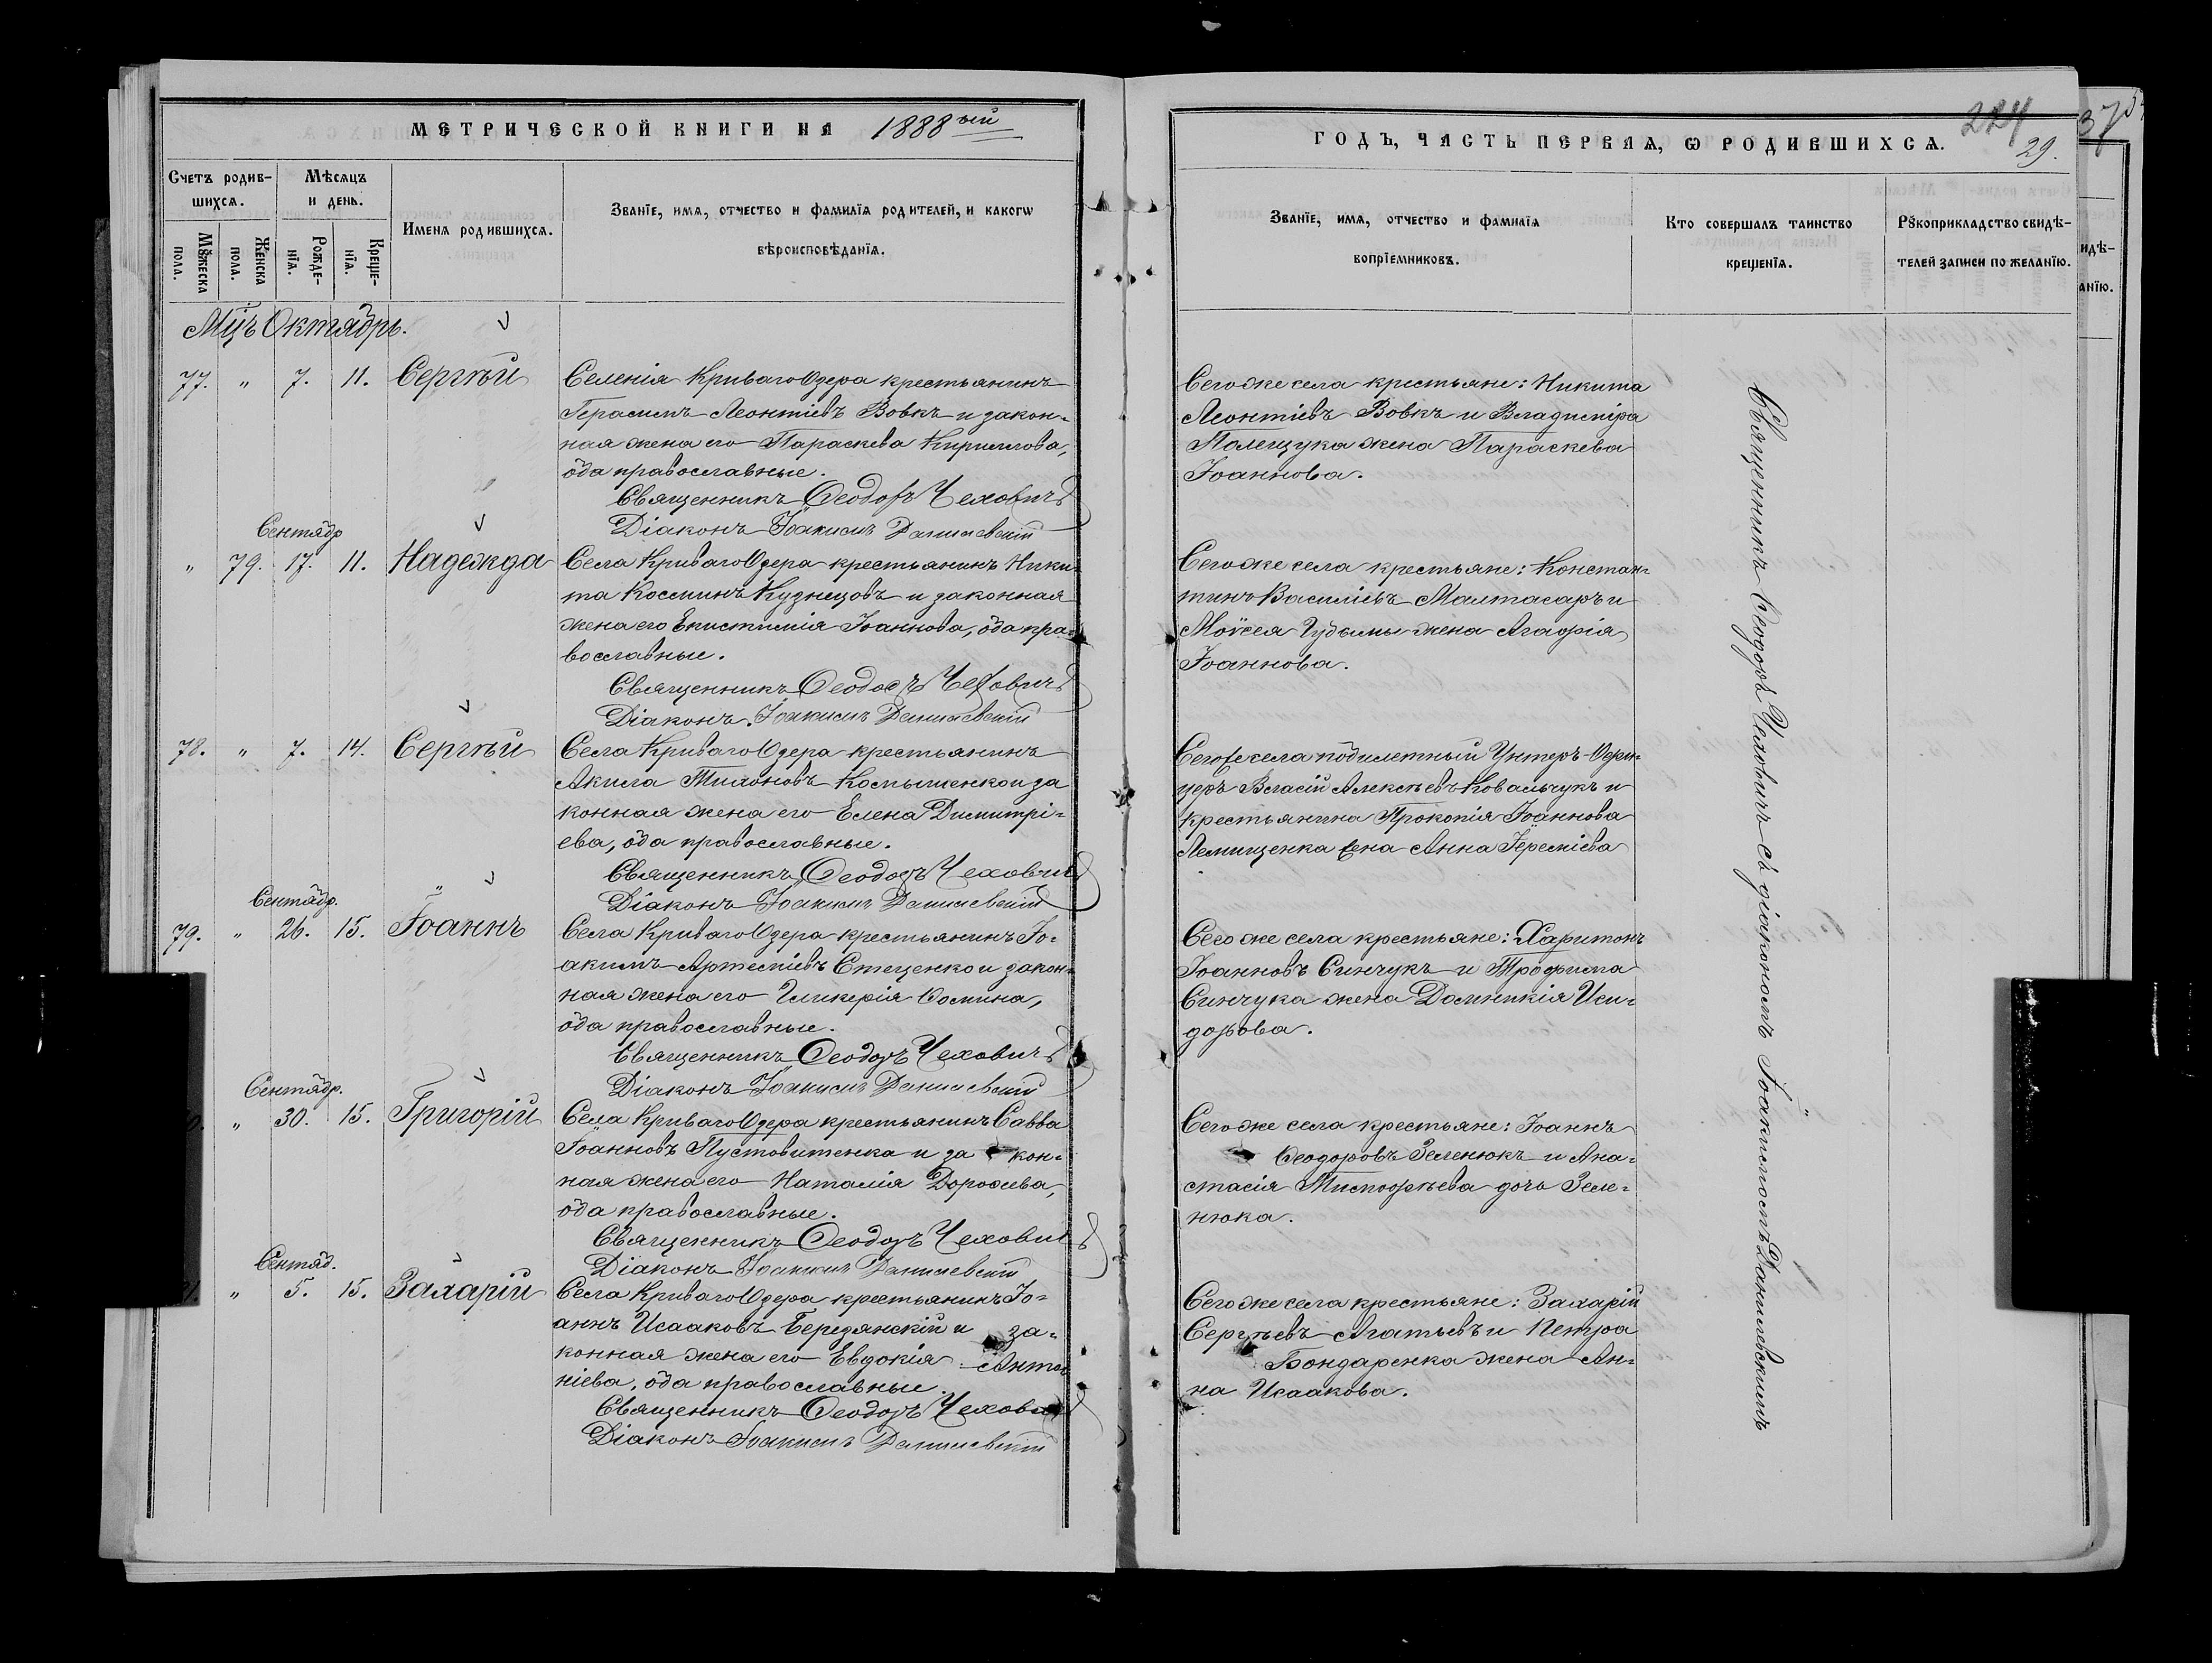 МЕТРИЧЕСКОЙ КНИГИ НА 1888ый
Счетъ родив-
шихся.
Мѣсяцъ
и день.
Имена родившихся.
Званїе, имя, отчество и фамилїя родителей, и какогw
вѣроисповѣданїя.
Мꙋжеска
пола.
Женска
пола.
Рожде-
нїя.
Креще-
нїя.
Мцъ Октябрь.
77. " 7. 11. Сергѣй
Селенія Криваго Озера крестьянинъ
Герасимъ Леонтіевъ Вовкъ и закон-
ная жена его Параскева Кириллова,
оба православные.
Священникъ Ѳеодоръ Чеховичъ
Діаконъ Іоакимъ Данилевскій
Сентябр
" 79. 17. 11. Надежда
Села Криваго Озера крестьянинъ Ники-
та Косминъ Кузнецовъ и законная
жена его Епистимія Іоаннова, оба пра-
вославные.
Священникъ Ѳеодоръ Чеховичъ
Діаконъ Іоакимъ Данилевскій
78. " 7. 14. Сергѣй
Села Криваго Озера крестьянинъ
Акила Тихоновъ Комышенко и за
конная жена его Елена Димитрі-
ева, оба православные.
Священникъ Ѳеодоръ Чеховичъ
Діаконъ Іоакимъ Данилевскій
Сентябр.
79. " 26. 15. Іоаннъ
Села Криваго Озера крестьянинъ Іо-
акимъ Артеміевъ Стеценко и закон-
ная жена его Гликерія Ѳомина,
оба православные.
Священникъ Ѳеодоръ Чеховичъ
Діаконъ Іоакимъ Данилевскій
Сентябр.
" 30. 15. Григорій
Села Криваго Озера крестьянинъ Савва
Іоанновъ Пустовитенка и за кон-
ная жена его Наталія Дороѳеева,
оба православные.
Священникъ Ѳеодоръ Чеховичъ
Діаконъ Іоакимъ Данилевскій
Сентяб.
" 5. 15. Захарій
Села Криваго Озера крестьянинъ Іо-
аннъ Исааковъ Березянскій и за-
конная жена его Евдокія Анто-
ніева, оба православные.
Священникъ Ѳеодоръ Чеховичъ
Діаконъ Іоакимъ Данилевскій
ГОДЪ, ЧАСТЬ ПЕРВАЯ, Ѡ РОДИВШИХСЯ.
224
29.
Званїе, имя, отчество и фамилїя
воспрїемниковъ.
Кто совершалъ таинство
крещенїя.
Рꙋкоприкладство свидѣ-
телей записи по желанїю.
Сего же села крестьяне: Никита
Леонтіевъ Вовкъ и Владиміра
Полещука жена Параскева
Іоаннова.
Сего же села крестьяне: Констан-
тинъ Василіевъ Малтасаръ и
Моѵсея Гудымы жена Агафія
Іоаннова.
Сего же села
Унтеръ-Офи-
церъ Власій Алексѣевъ Ковальчукъ и
крестьянина Прокопія Іоаннова
Лемищенка жена Анна Іереміева
Сего же села крестьяне: Харитонъ
Іоанновъ Синчукъ и Трофима
Синчука жена Домникія Иси-
дорова.
Сего же села крестьяне: Іоаннъ
Ѳеодоровъ Зеленюкъ и Ана-
стасія Тимофѣева дочь Зеле-
нюка.
Сего же села крестьяне: Захарій
Сергѣевъ Агатьевъ и Петра
Бондаренка жена Ан-
на Исаакова.
Священникъ Ѳеодоръ Чеховичъ съ діакономъ Іоакимомъ Данилевскимъ
375
идѣ-
анїю.